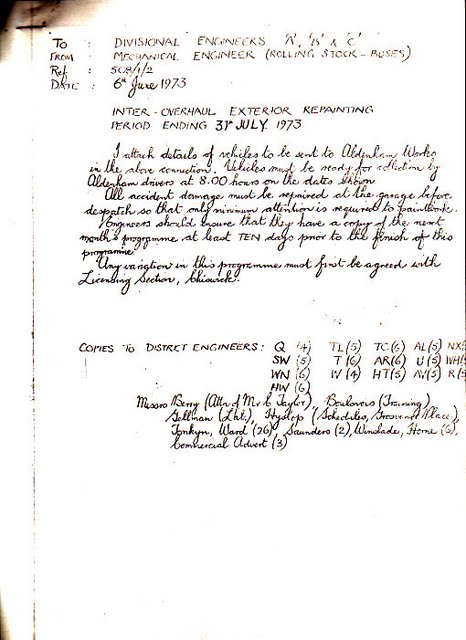 TO : DIVISIONAL ENGINEERS 'A', 'B' & 'C'
FROM : MECHANICAL ENGINEER (ROLLING STOCK - BUSES)
Ref : 508/1/2
DATE : 6th June 1973
INTER-OVERHAUL EXTERIOR REPAINTING
PERIOD ENDING 31st JULY 1973
I attach details of vehicles to be sent to Aldenham Works
in the above connection. Vehicles must be ready for collection by
Aldenham drivers at 8.00 hours on the dates shown
All accident damage must be repaired at the garage before
despatch so that only minimum attention is required to paintwork.
Engineers should ensure that they have a copy of the next
month's programme at least TEN days prior to the finish of this
programme
Any variation in this programme must first be agreed with
Licensing Section, Chiswick.
COPIES TO DISTRICT ENGINEERS: Q (4) TL(5) TC(6) AL(5) NX(
SW (5) T (6) AR(6) U(5) WH(
WN (6) W (4) HT(5) AV(5) R(
HW (6)
Messrs Berry (Attn of Mr C Taylor), (Training)
(Lht), Hyslop (Schedules, Grosvenor Place),
Tonkyn, Ward (26), Saunders (2), Windade, Horne (5),
Commercial Advert (3)